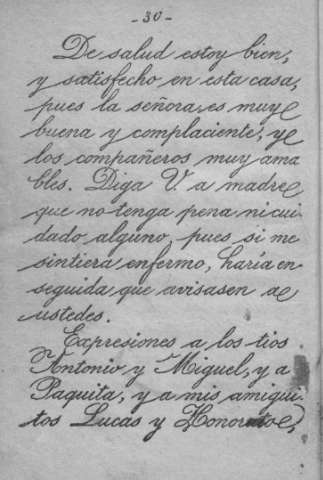 - 30 -
De salud estoy bien,
y satisfecho en esta casa,
pues la señora es muy
buena y complaciente, y
los compañeros muy ama
bles. Diga V. a madre
que no tenga pena ni cui-
dado alguno, pues si me
sintiera enfermo, haría en
seguida que avisasen a
ustedes.
Expresiones a los tios
Antonio y Miguel, y a
Paquita, y a mis amigui-
tos Lucas y Honorato,